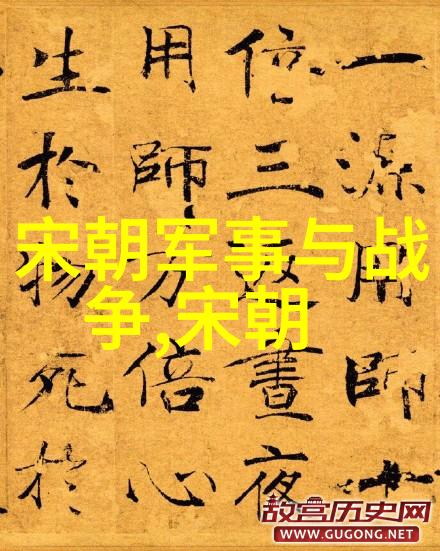 一源用師十
倍三晝夜
用師万倍心
生於物死於
宋朝军事与战
争,宋朝
故宫历史网
WWW.GUGONG.NET